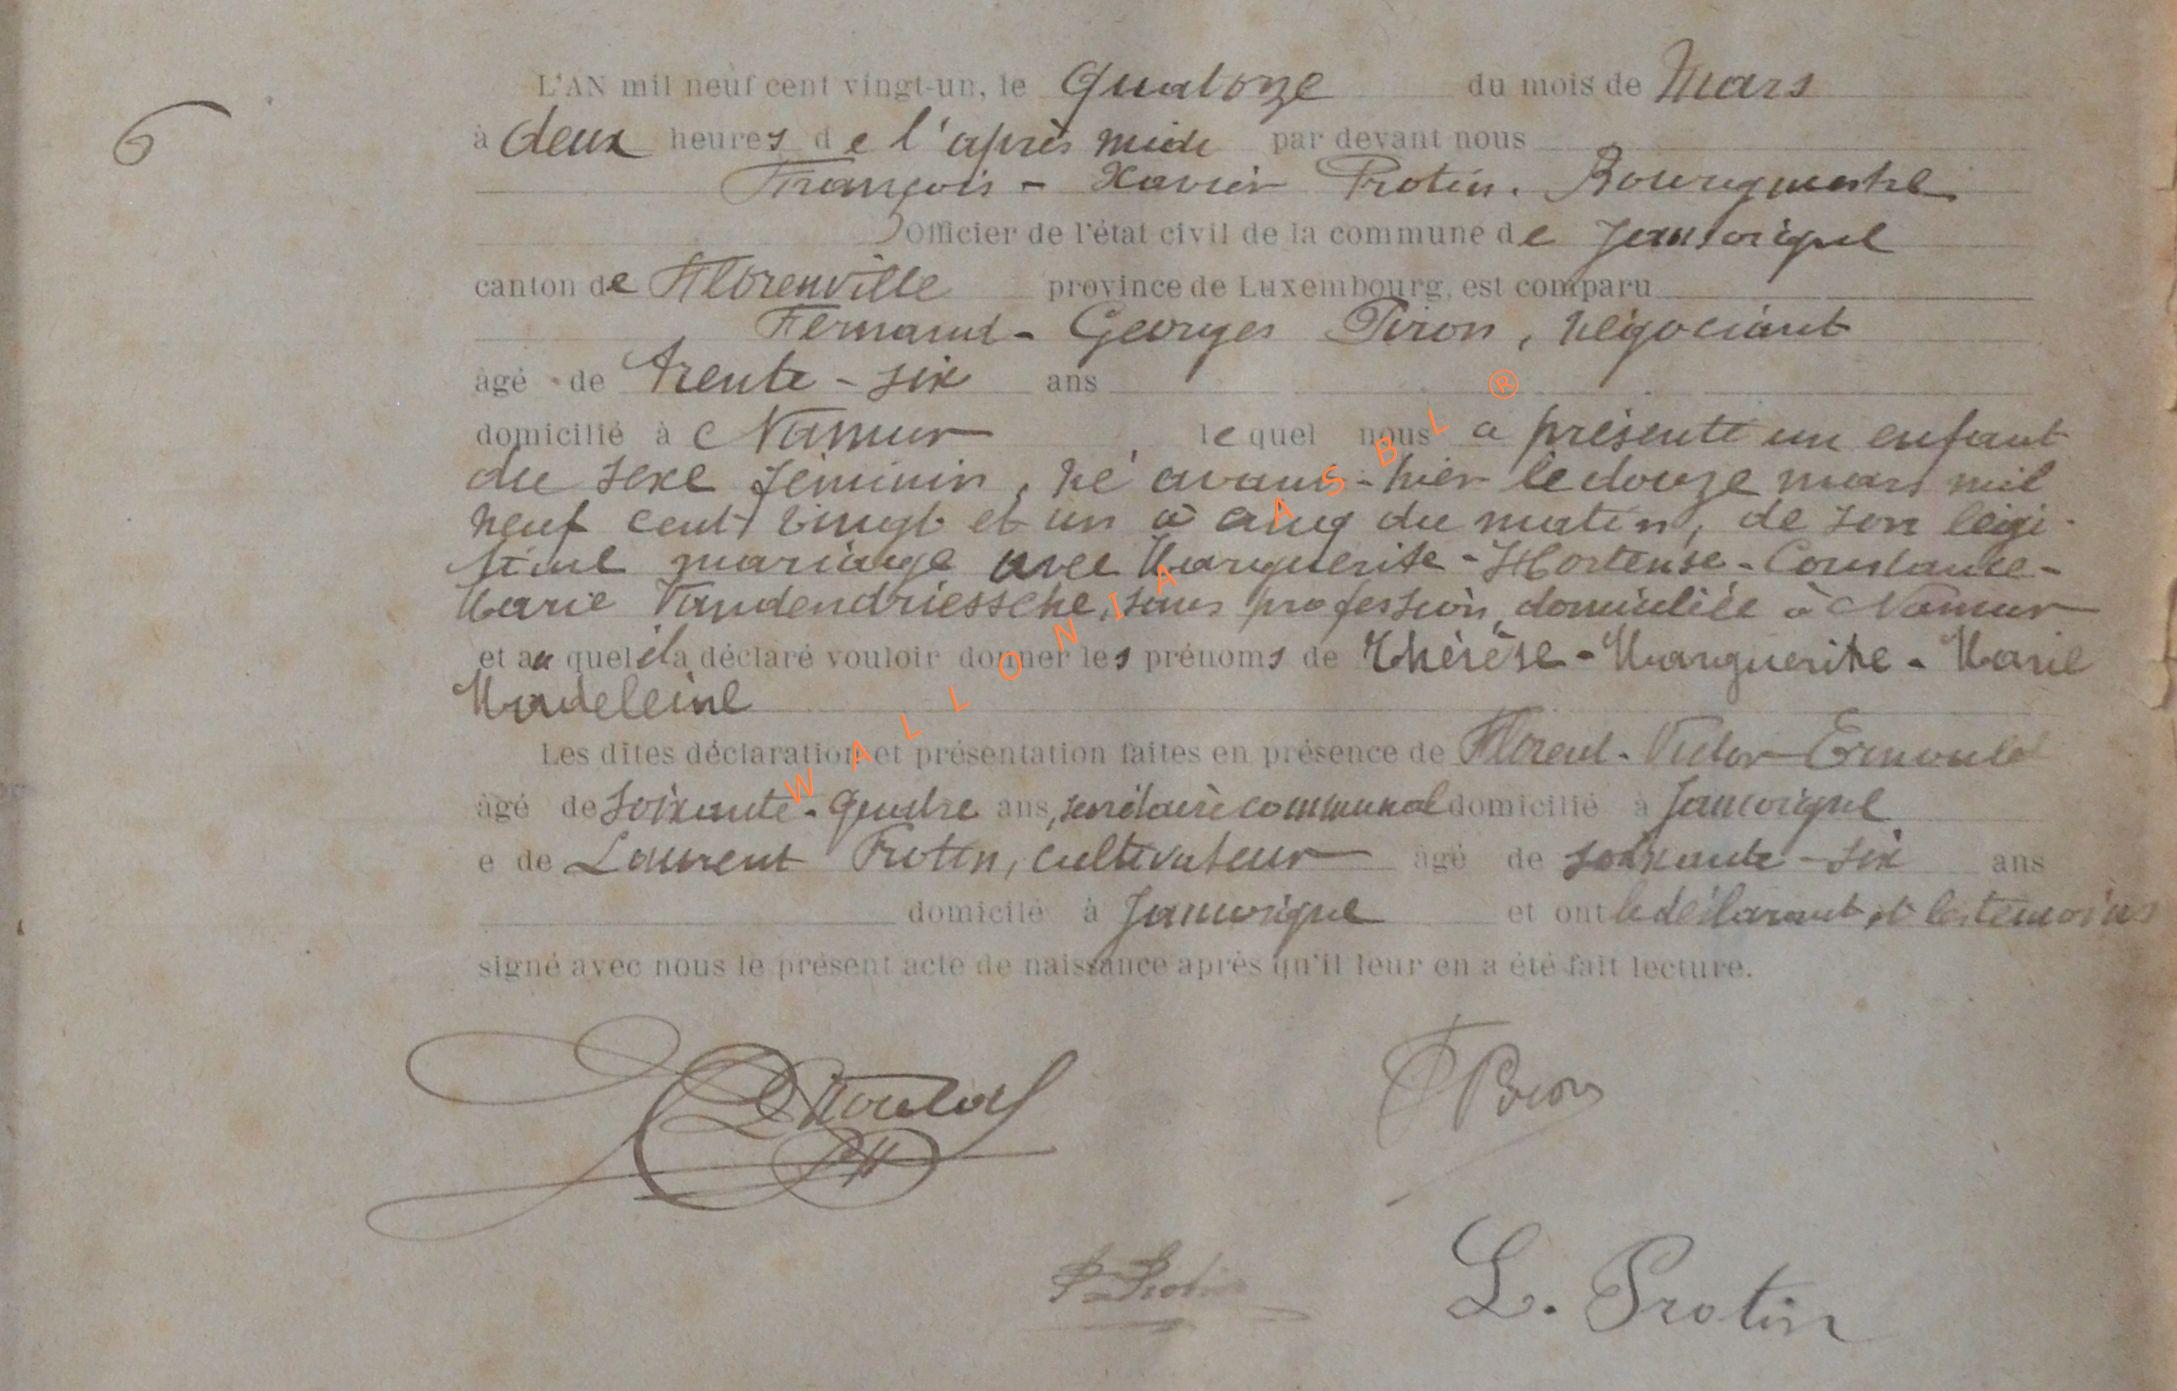 L'AN mil neuf cent vingt-un, le Quatorze du mois de Mars
6
à deux heures de l'après midi par devant nous
François - Xavier Protin. Bourgmestre
Officier de l'état civil de la commune de Jamoigne
canton de Florenville province de Luxembourg, est comparu
Fernand - Georges Piron, négociant
âgé de trente - six ans
domicilié à Namur lequel nous a présenté un enfant
du sexe féminin, né avant-hier le douze mars mil
neuf cent vingt et un à cinq du matin, de son légi-
time mariage avec Marguerite - Hortense - Constance -
Marie Vandendriessche, sans profession, domiciliée à Namur
et auquel il a déclaré vouloir donner les prénoms de Thérèse - Marguerite - Marie
Madeleine
Les dites déclaration et présentation faites en présence de Florent - Victor
âgé de soixante - quatre ans, secrétaire communal domicilié à Jamoigne
e de Laurent Protin, cultivateur âgé de soixante - six ans
domicilé à Jamoigne et ont le déclarant et les témoins
signé avec nous le présent acte de naissance après qu'il leur en a été fait lecture.
F Piron
Protin
L. Protin
WALLONIA ASBL ®